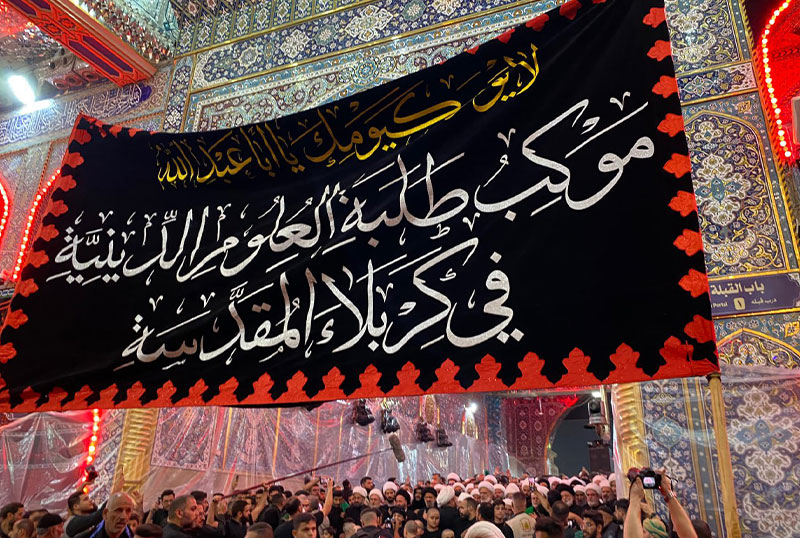 لا يوم كيومك يا أبا عبد الله
مَوْكِبُ طَلَبَةِ العُلُومِ الدِّينِيَّةِ
فِي كَرْبَلَاءَ المُقَدَّسَةِ
باب القبلة
درب قبله
Portal
١